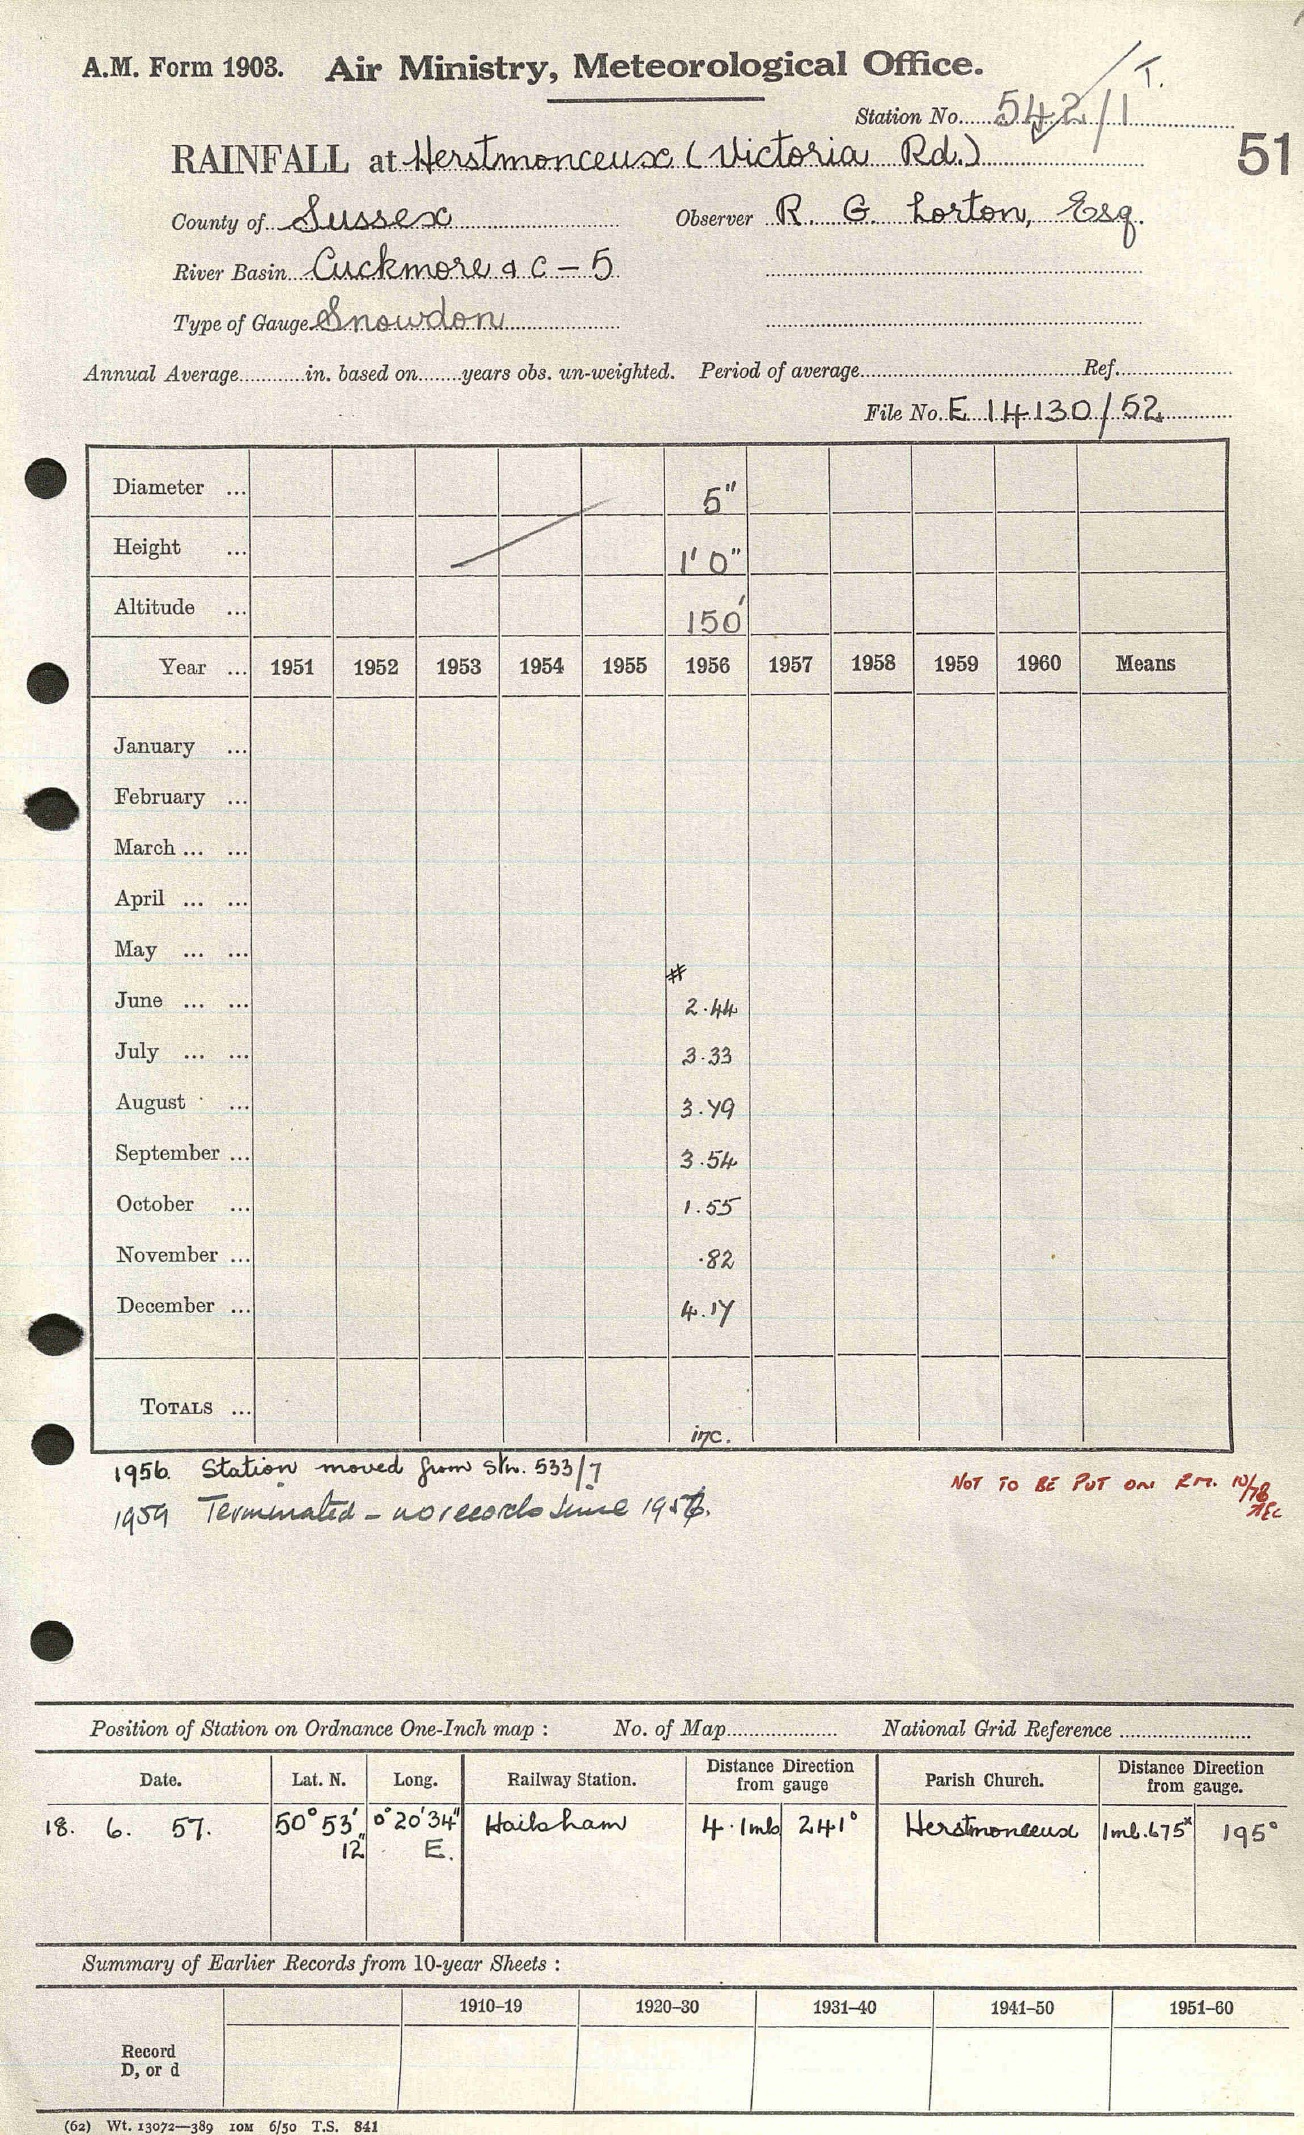 A.M. Form 1903. Air Ministry, Meteorological Office.
T.
Station No. 542/1
51
RAINFALL at Herstmonceux (Victoria Rd.)
County of Sussex Observer R. G. Lorton, Esq.
River Basin Cuckmore &c - 5
Type of Gauge Snowdon
Annual Average............in. based on........years obs. un-weighted. Period of average............Ref.............
File No. E 14130/52
Diameter ... 5"
Height ... 1' 0"
Altitude ... 150'
Year ... 1951 1952 1953 1954 1955 1956 1957 1958 1959 1960 Means
January ...
February ...
March ... ...
April ... ...
May ... ...
#
June ... ... 2.44
July ... ... 3.33
August ... 3.79
September ... 3.54
October ... 1.55
November ... .82
December ... 4.17
TOTALS ... inc.
1956 Station moved from Stn. 533/7
NOT TO BE PUT ON RM. 10/78
1959 Terminated - no records since 1956.
Position of Station on Ordnance One-Inch map : No. of Map.................... National Grid Reference ........................
Date. Lat. N. Long. Railway Station. Distance Direction from gauge Parish Church. Distance Direction from gauge.
18. 6. 57. 50° 53' 12" 0° 20' 34" E. Hailsham 4.1mls 241° Herstmonceux 1ml.675x 195°
Summary of Earlier Records from 10-year Sheets :
1910–19 1920–30 1931–40 1941–50 1951–60
Record
D, or d
(62) Wt. 13072—389 10M 6/50 T.S. 841